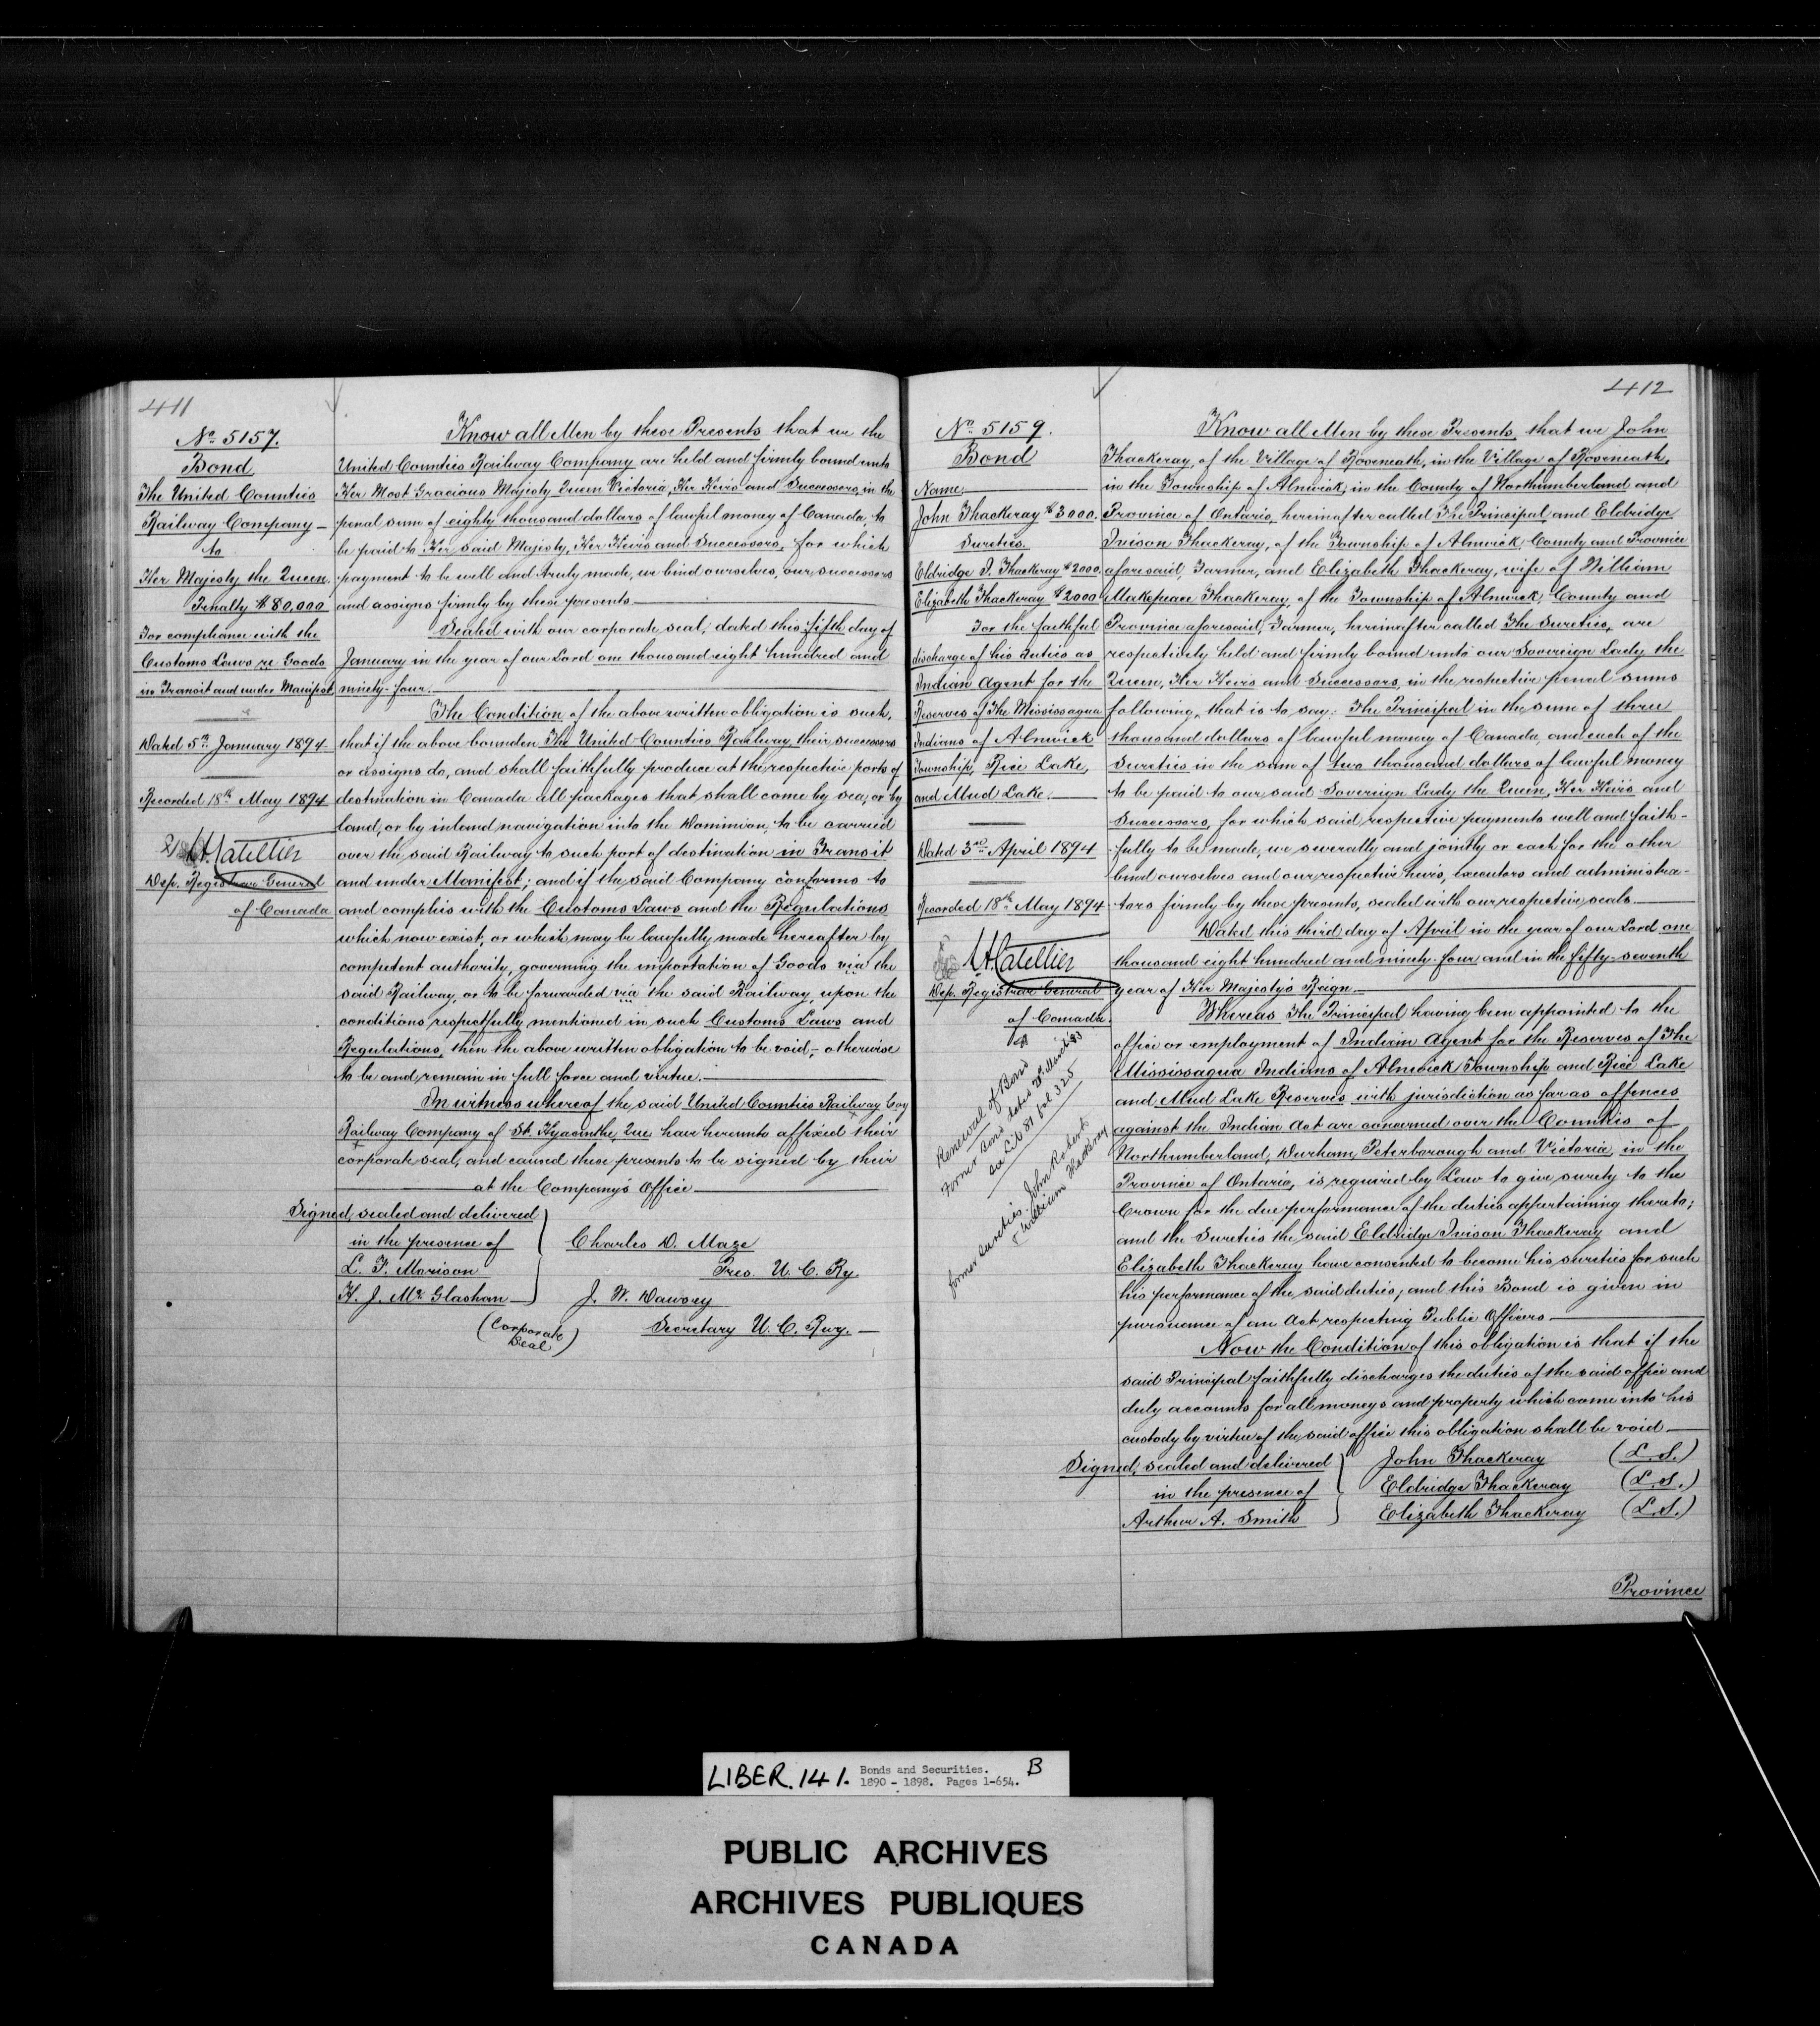 411
No. 5157.
Bond
The United Counties
Railway Company —
to
Her Majesty the Queen.
Penalty $80,000
For compliance with the
Customs Laws re Goods
in Transit and under Manifest
Dated 5th January 1894
Recorded 18th May 1894
Dep. Registrar General
of Canada
Know all Men by these Presents that we the
United Counties Railway Company are held and firmly bound unto
Her Most Gracious Majesty Queen Victoria, Her Heirs and Successors, in the
penal sum of eighty thousand dollars of lawful money of Canada, to
be paid to Her said Majesty, Her Heirs and Successors, for which
payment to be well and truly made, we bind ourselves, our successors
and assigns firmly by these presents
Sealed with our corporate seal, dated this fifth day of
January in the year of our Lord one thousand eight hundred and
ninety-four.
The Condition of the above written obligation is such,
that if the above bounden The United Counties Railway, their successors
or assigns do, and shall faithfully produce at the respective ports of
destination in Canada all packages that shall come by sea, or by
land, or by inland navigation into the Dominion, to be carried
over the said Railway to such port of destination in Transit
and under Manifest; and if the said Company conforms to
and complies with the Customs Laws and the Regulations
which now exist, or which may be lawfully made hereafter by
competent authority, governing the importation of Goods via the
said Railway, or to be forwarded via the said Railway, upon the
conditions respectfully mentioned in such Customs Laws and
Regulations, then the above written obligation to be void,- otherwise
to be and remain in full force and virtue.
In witness whereof the said United Counties Railway Coy
Railway Company of St. Hyacinthe, Que. have hereunto affixed their
corporate seal, and caused these presents to be signed by their
at the Company's Office
Signed, sealed and delivered
in the presence of
L. F. Morison
H. J. Mc Glashan
Charles D. Maze
Pres. U. C. Ry.
J. W. Dawsey
Secretary U. C. Rwy.
(Corporate
Seal)
412
No. 5159.
Bond
Name.
John Thackeray $3000.
Sureties.
Eldridge I. Thackeray $2000.
Elizabeth Thackeray $2000
For the faithful
discharge of his duties as
Indian Agent for the
Reserves of The Mississagua
Indians of Alnwick
Township, Rice Lake,
and Mud Lake.
Dated 3rd April 1894
Recorded 18th May 1894
Dep. Registrar General
of Canada.
Renewal of Bond
Former Bond dated March '83
see Lib 81 fol 325
former sureties. John Robert
& William Thackeray
Know all Men by these Presents, that we John
Thackeray, of the Village of Roseneath, in the Village of Roseneath,
in the Township of Alnwick, in the County of Northumberland and
Province of Ontario, hereinafter called The Principal, and Eldridge
Ivison Thackeray, of the Township of Alnwick, County and Province
aforesaid, Farmer, and Elizabeth Thackeray, wife of William
Makepeace Thackeray, of the Township of Alnwick, County and
Province aforesaid, Farmer, hereinafter called The Sureties, are
respectively held and firmly bound unto our Sovereign Lady the
Queen, Her Heirs and Successors, in the respective penal sums
following, that is to say: The Principal in the sum of three
thousand dollars of lawful money of Canada, and each of the
Sureties in the sum of two thousand dollars of lawful money
to be paid to our said Sovereign Lady the Queen, Her Heirs and
Successors, for which said respective payments well and faith-
fully to be made, we severally and jointly or each for the other
bind ourselves and our respective heirs, executors and administra-
tors firmly by these presents, sealed with our respective seals
Dated this third day of April in the year of our Lord one
thousand eight hundred and ninety-four and in the fifty-seventh
year of Her Majesty's Reign
Whereas The Principal having been appointed to the
office or employment of Indian Agent for the Reserves of The
Mississagua Indians of Alnwick Township and Rice Lake
and Mud Lake Reserves with jurisdiction as far as offences
against the Indian Act are concerned over the Counties of
Northumberland, Durham, Peterborough and Victoria, in the
Province of Ontario, is required by Law to give surety to the
Crown for the due performance of the duties appertaining thereto;
and the Sureties the said Eldridge Ivison Thackeray and
Elizabeth Thackeray have consented to become his sureties for such
his performance of the said duties, and this Bond is given in
pursuance of an Act respecting Public Officers
Now the Condition of this obligation is that if the
said Principal faithfully discharges the duties of the said office and
duly accounts for all moneys and property which come into his
custody by virtue of the said office this obligation shall be void
Signed, sealed and delivered
in the presence of
Arthur A. Smith
John Thackeray (L.S.)
Eldridge Thackeray (L.S.)
Elizabeth Thackeray (L.S.)
Province
LIBER. 141. Bonds and Securities. B
1890 - 1898. Pages 1-654.
PUBLIC ARCHIVES
ARCHIVES PUBLIQUES
CANADA